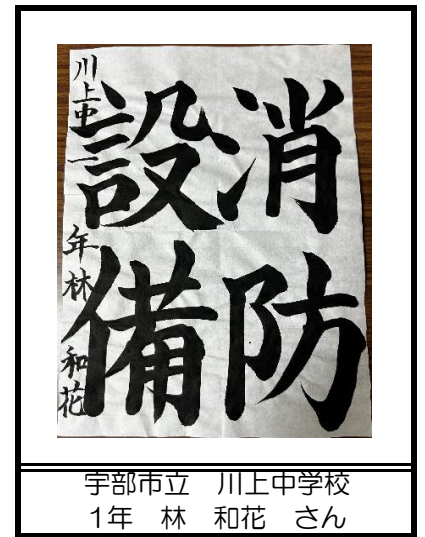 消防
設備
川上中一年 林 和花
宇部市立 川上中学校
1年 林 和花 さん